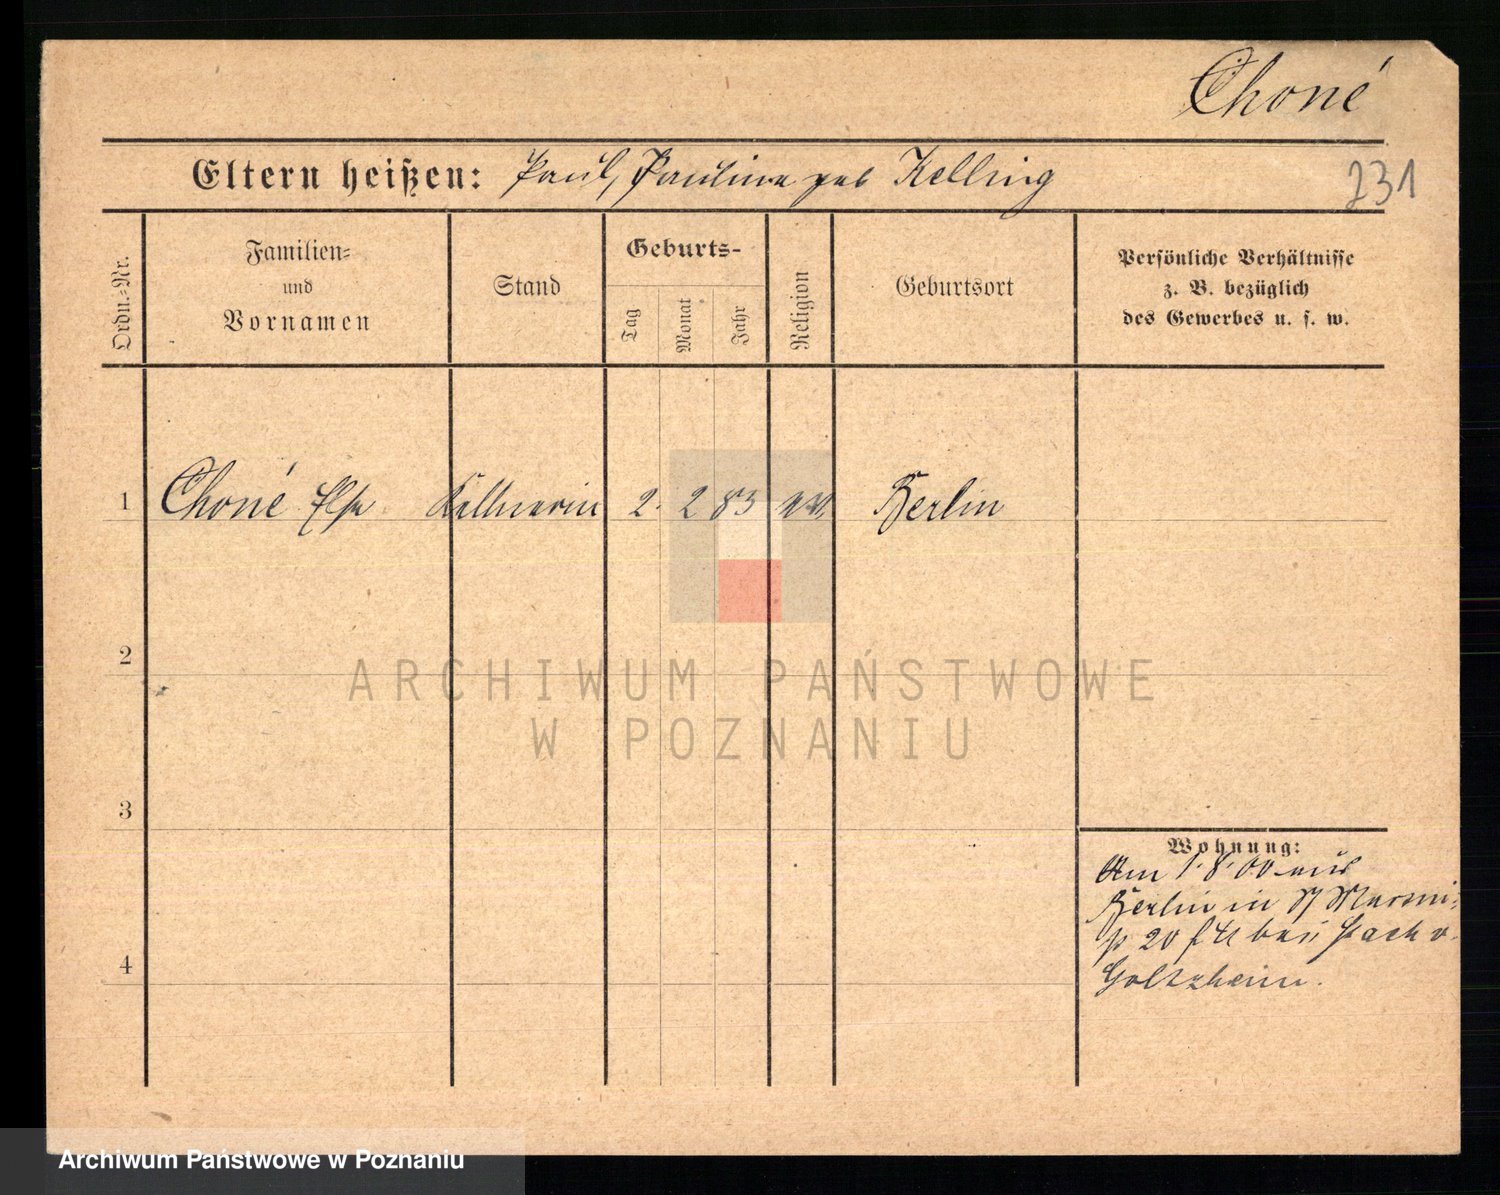 Choné
Eltern heißen: Paul, Pauline geb Kelling
231
Ordn.-Nr.
Familien-
und
Vornamen
Stand
Geburts-
Tag
Monat
Jahr
Religion
Geburtsort
Persönliche Verhältnisse
z. B. bezüglich
des Gewerbes u. s. w.
1 Choné Else Kellnerin 2. 2 83 ev. Berlin
2
ARCHIWUM PAŃSTWOWE
W POZNANIU
3
Wohnung:
Am 1.8.00 aus
Berlin in St Martin
20 bei
4
Goltzheim.
Archiwum Państwowe w Poznaniu